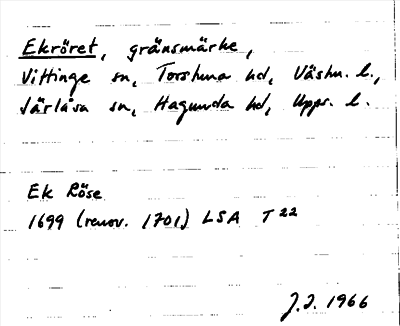 Ekröret, gränsmärke,
Vittinge sn, Torstuna hd, Västm. l.,
Järlåsa sn, Hagunda hd, Upps. l.
Ek Röse
1699 (renov. 1701) LSA T 22
J.J. 1966